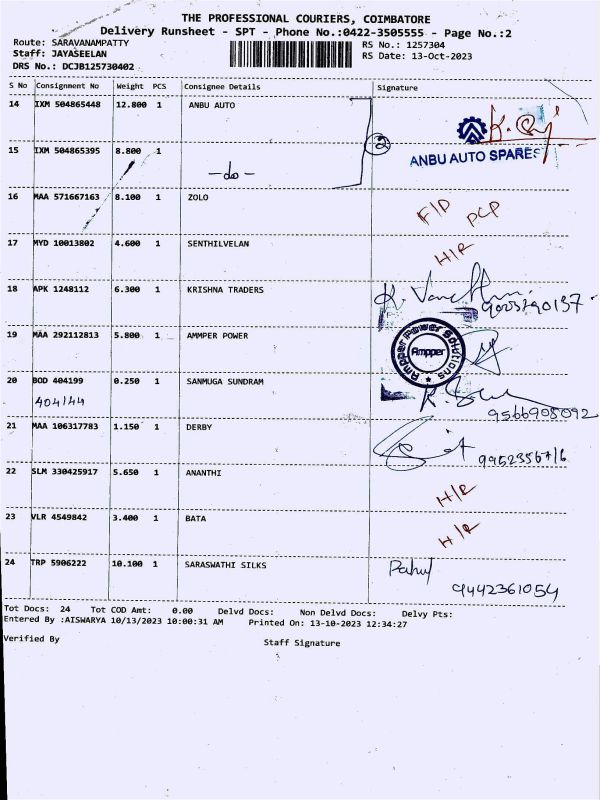 THE PROFESSIONAL COURIERS, COIMBATORE
Delivery Runsheet - SPT - Phone No.:0422-3505555 - Page No.:2
Route: SARAVANAMPATTY RS No.: 1257304
Staff: JAYASEELAN RS Date: 13-Oct-2023
DRS No.: DCJB125730402
S No Consignment No Weight PCS Consignee Details Signature
14 IXM 504865448 12.800 1 ANBU AUTO
15 IXM 504865395 8.800 1 -do- 2 ANBU AUTO SPARES
16 MAA 571667163 8.100 1 ZOLO F/D PCP
17 MYD 10013802 4.600 1 SENTHILVELAN H/R
18 APK 1248112 6.300 1 KRISHNA TRADERS
19 MAA 292112813 5.800 1 AMMPER POWER Ampper Power Solutions Ampper
20 BOD 404199 0.250 1 SANMUGA SUNDRAM
404144 9566905092
21 MAA 106317783 1.150 1 DERBY 9952356716
22 SLM 330425917 5.650 1 ANANTHI H/R
23 VLR 4549842 3.400 1 BATA H/R
24 TRP 5906222 10.100 1 SARASWATHI SILKS
9442361054
Tot Docs: 24 Tot COD Amt: 0.00 Delvd Docs: Non Delvd Docs: Delvy Pts:
Entered By :AISWARYA 10/13/2023 10:00:31 AM Printed On: 13-10-2023 12:34:27
Verified By Staff Signature